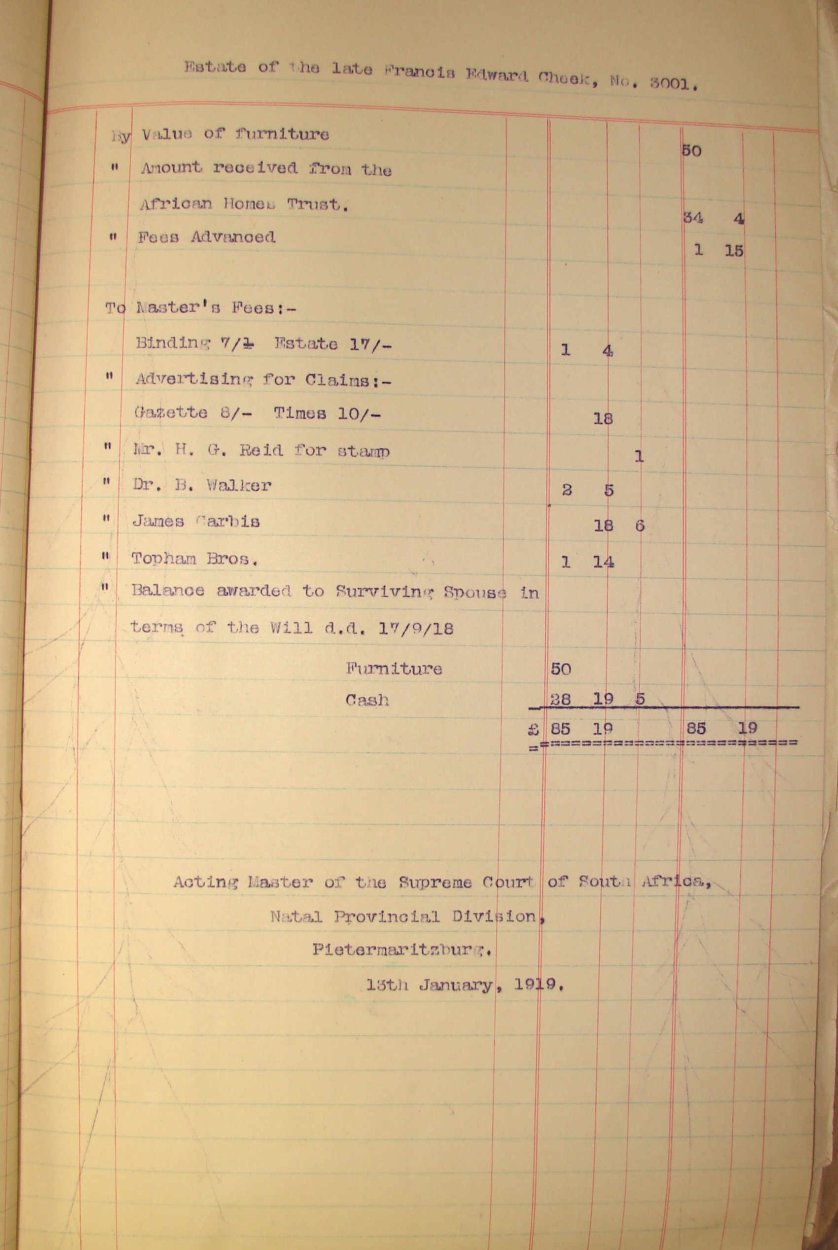 Estate of the late Francis Edward Cheek, No. 3001.
By Value of furniture 50
" Amount received from the
African Homes Trust. 34 4
" Fees Advanced 1 15
To Master's Fees:-
Binding 7/- Estate 17/- 1 4
" Advertising for Claims:-
Gazette 8/- Times 10/- 18
" Mr. H. G. Reid for stamp 1
" Dr. B. Walker 2 5
" James Carbis 18 6
" Topham Bros. 1 14
" Balance awarded to Surviving Spouse in
terms of the Will d.d. 17/9/18
Furniture 50
Cash 28 19 5
£ 85 19 85 19
Acting Master of the Supreme Court of South Africa,
Natal Provincial Division,
Pietermaritzburg.
13th January, 1919.